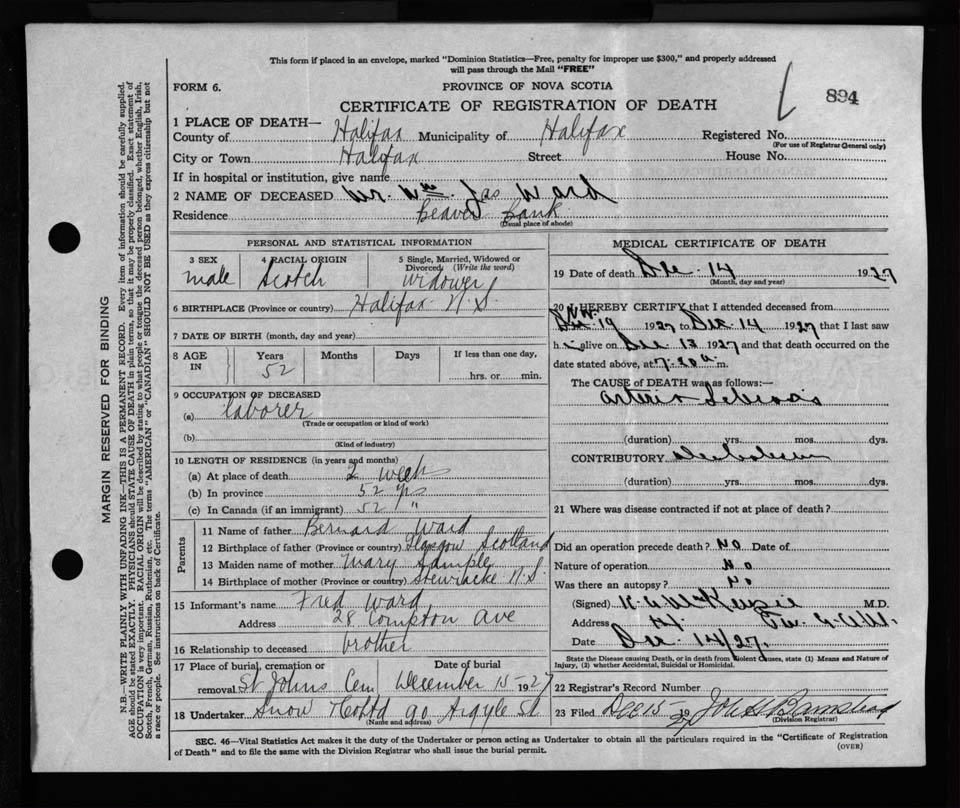 This form if placed in an envelope, marked "Dominion Statistics—Free, penalty for improper use $300," and properly addressed
will pass through the Mail "FREE"
FORM 6.
PROVINCE OF NOVA SCOTIA
CERTIFICATE OF REGISTRATION OF DEATH
894
1 PLACE OF DEATH—
County of Halifax Municipality of Halifax Registered No.
(For use of Registrar General only)
City or Town Halifax Street House No.
If in hospital or institution, give name
2 NAME OF DECEASED Mr. Wm. Jas Ward
Residence Beaver Bank
(Usual place of abode)
PERSONAL AND STATISTICAL INFORMATION
3 SEX male
4 RACIAL ORIGIN Scotch
5 Single, Married, Widowed or Divorced (Write the word) Widower
6 BIRTHPLACE (Province or country) Halifax N.S.
7 DATE OF BIRTH (month, day and year)
8 AGE IN Years 52 Months Days If less than one day, hrs. or min.
9 OCCUPATION OF DECEASED
(a) laborer
(Trade or occupation or kind of work)
(b)
(Kind of industry)
10 LENGTH OF RESIDENCE (in years and months)
(a) At place of death 2 weeks
(b) In province 52 yrs
(c) In Canada (if an immigrant) 52 "
Parents
11 Name of father Bernard Ward
12 Birthplace of father (Province or country) Glasgow Scotland
13 Maiden name of mother Mary Sample
14 Birthplace of mother (Province or country) Stewiacke N.S.
15 Informant's name Fred Ward
Address 28 Compton Ave
16 Relationship to deceased brother
17 Place of burial, cremation or removal St Johns Cem Date of burial December 15—1927
18 Undertaker Snow & Co Ltd 90 Argyle St
(Name and address)
MEDICAL CERTIFICATE OF DEATH
19 Date of death Dec. 14 1927
(Month, day and year)
20 I HEREBY CERTIFY that I attended deceased from
Nov. 19 1927 to Dec. 14 1927 that I last saw
h alive on Dec 13 1927 and that death occurred on the
date stated above, at 7.20 a. m.
The CAUSE of DEATH was as follows:—
Arterio Sclerosis
(duration) yrs. mos. dys.
CONTRIBUTORY
(duration) yrs. mos. dys.
21 Where was disease contracted if not at place of death?
Did an operation precede death? No Date of
Nature of operation No
Was there an autopsy? No
(Signed) McKenzie M.D.
Address
Date Dec. 14/27.
State the Disease causing Death, or in death from Violent Causes, state (1) Means and Nature of
Injury, (2) whether Accidental, Suicidal or Homicidal.
22 Registrar's Record Number
23 Filed Dec 15 1927
(Division Registrar)
SEC. 46—Vital Statistics Act makes it the duty of the Undertaker or person acting as Undertaker to obtain all the particulars required in the "Certificate of Registration
of Death" and to file the same with the Division Registrar who shall issue the burial permit.
(OVER)
MARGIN RESERVED FOR BINDING
N.B.—WRITE PLAINLY WITH UNFADING INK—THIS IS A PERMANENT RECORD. Every item of information should be carefully supplied.
AGE should be stated EXACTLY. PHYSICIANS should STATE CAUSE OF DEATH in plain terms, so that it may be properly classified. Exact statement of
OCCUPATION is very important. RACIAL ORIGIN will be described by stating to what people or tongue the deceased person belonged, whether English, Irish,
Scotch, French, German, Russian, Ruthenian, etc. The terms "AMERICAN" or "CANADIAN" SHOULD NOT BE USED as they express citizenship but not
a race or people. See instructions on back of Certificate.